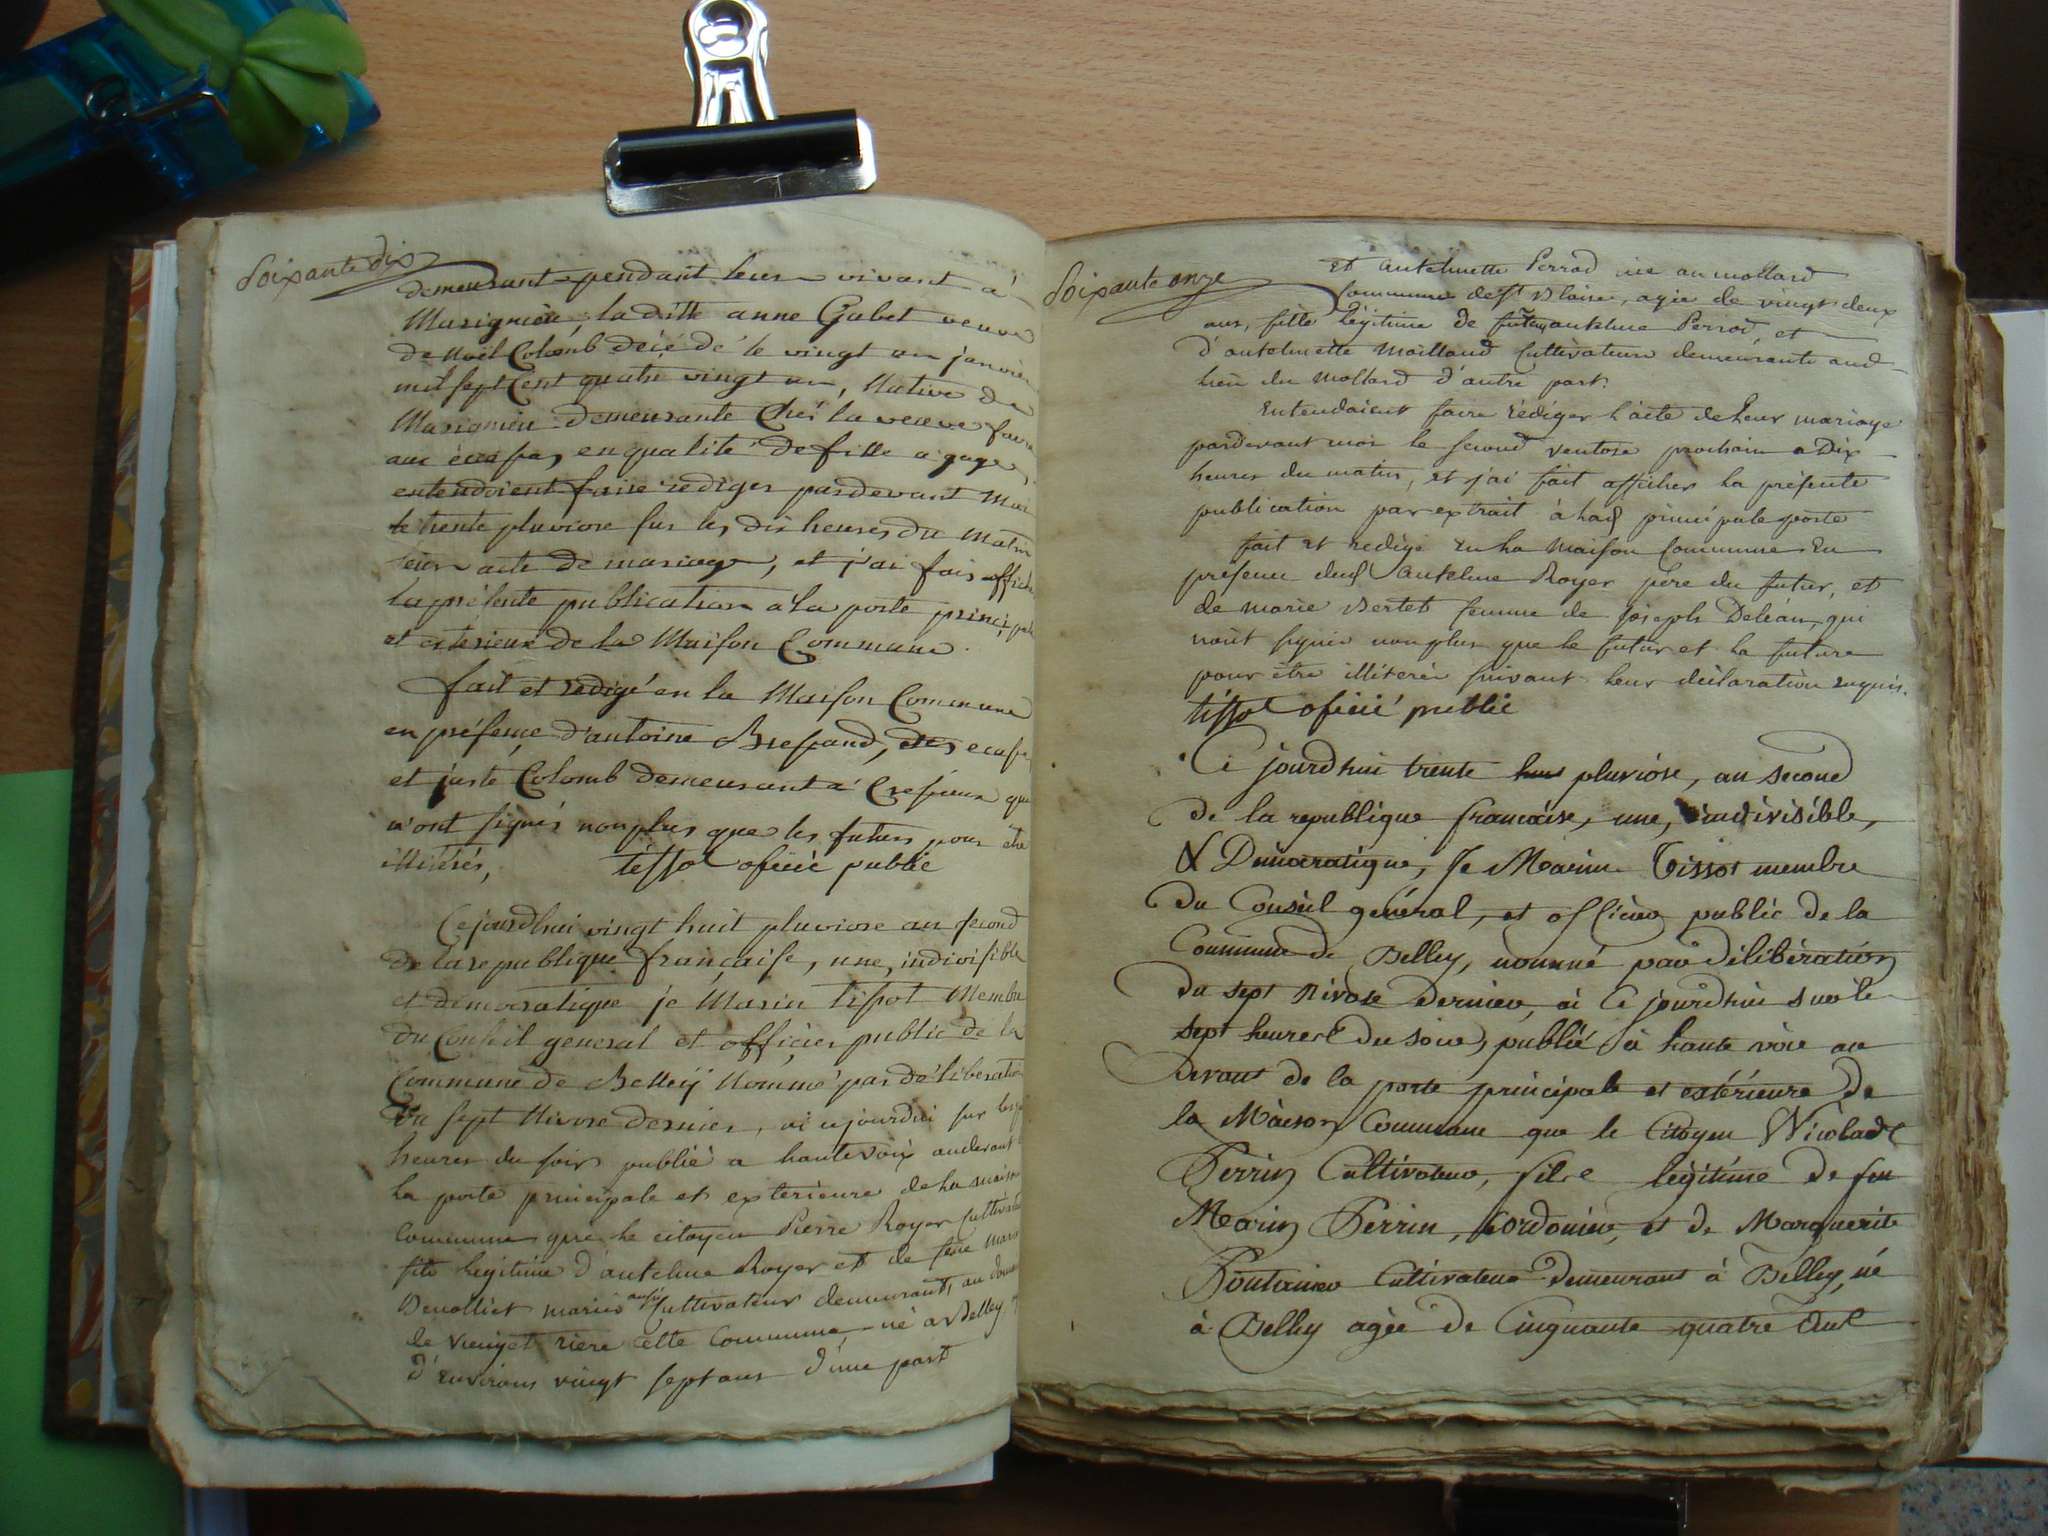 Soixante dix
demeurant pendant leur vivant a
Marignieu, la ditte anne Gabet veuve
de Noël Colomb décédé le vingt un janvier
mil sept Cent quatre vingt un, Native de
Marignieu demeurante Chés la veuve
en qualité de fille a gage
entendoient faire rediger pardevant Moi
le trente pluviose sur les dix heures du Matin
leur acte de mariage, et j'ai fais affiche
la présente publication a la porte principale
et extérieure de la Maison Commune.
fait et redigé en la Maison Commune
en présence d'antoine Bressand, des ecasse
et juste Colomb demeurant a Cressieux qui
n'ont signés non plus que les futurs pour etre
illiterés, tissot oficié public
Cejourdhui vingt huit pluviose an second
de la republique française, une, indivisible
et democratique je Marin tissot Membre
du Conseil general et officier public de la
Commune de Belley Nommé par déliberation
du sept Nivose dernier, ai cejourdui sur les
heures du soir publié a haute voix audevant
la porte principale et exterieure de la maison
Commune que le citoyen Pierre Royer Cultivateur
fils légitime d'antelme Royer et de feue marie
Benollict mariés aussi Cultivateur demeurant, au
de riere cette Commune, né a Belley
d'Environs vingt sept ans d'une part
Soixante onze
et antelmette Perrod née au mollard
Commune de St Blaise, agée de vingt deux
ans, fille légitime de feu antelme Perrod, et
d'antelmette Maillaud Cultivateurs demeurante aud
lieu du Mollard d'autre part.
Entendaient faire rédiger l'acte de leur mariage
pardevant moi le second ventose prochain a Dix
heures du matin, et j'ai fait afficher la présente
publication par extrait à lad principale porte
fait et redigé en la Maison Commune En
présence dud antelme Royer père du futur, et
de marie Bertet femme de Joseph Deléan, qui
n'ont signés non plus que le futur et la future
pour être illiterés suivant leur déclaration enquis.
tissot oficié public
Ce jourdhui trente pluviose, an second
de la republique francaise, une, indivisible,
& Democratique, Je Marin Tissot membre
du Conseil général, et officier public de la
Commune de Belley, nommé par délibération
du sept Nivose dernier, ai Ce jourdhui sur le
sept heures du soir, publié à haute voie au
devant de la porte principale et extérieure de
la Maison Commune que le Citoyen Nicolas
Perrin Cultivateur, fils légitime de feu
Marin Perrin, Cordonier, et de Marguerite
Fontanier Cultivateur demeurant à Belley, né
à Belley agée de Cinquante quatre ans